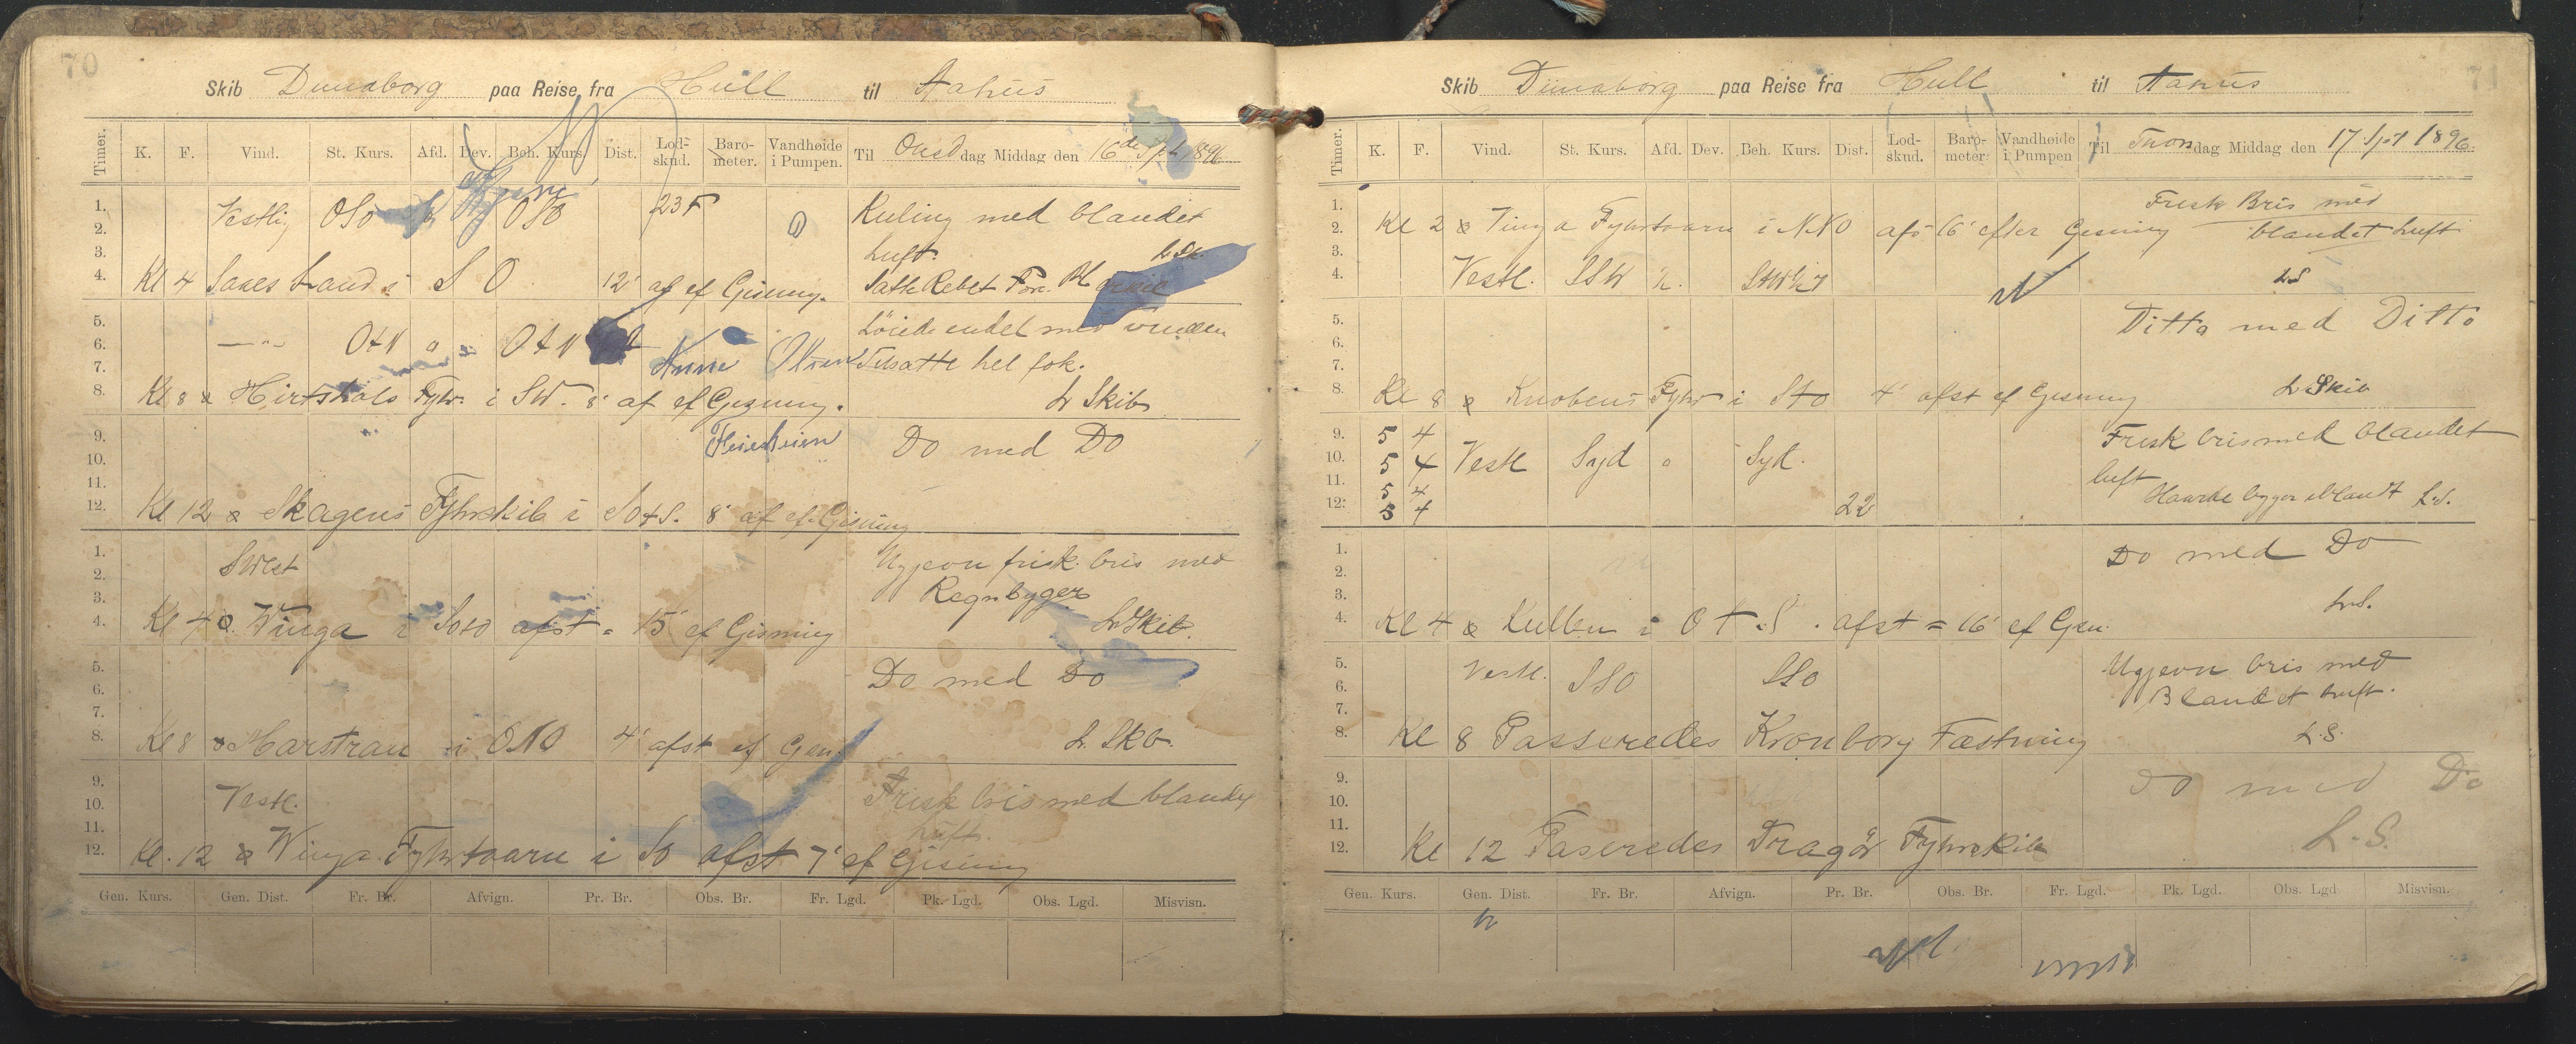 70
Skib Dunaborg paa Reise fra Hull til Aahus
Timer. K. F. Vind. St. Kurs. Afd. Dev. Beh. Kurs. Dist. Lod-skud. Baro-meter. Vandhøide i Pumpen. Til Onsd dag Middag den 16de Spt 1896
1. Vestlig OSO OSO 23 F Kuling med blandet
2.
3. Luft. L. Sk.
4. Kl 4 Land i S O 12' af ef Gisning. Satte Rebet For.
5. Löiede endel med vinden
6. —"— OtN o OtN Anna Olsen
7. Tilsatte hel fok.
8. Kl 8 Hirtshals Fyhr i SW. 8' af ef Gisning. L Skib
9. Heierheien Do med Do
10.
11.
12. Kl 12 Skagens Fyhrskib i SOtS. 8' af ef. Gisning
1. Ugjevn frisk. bris med
2. SWest Regnbyger
3. L Skib.
4. Kl 4 Winga i SOtO afst = 15' ef Gisning
5. Do med Do
6.
7.
8. Kl 8 Marstran i ONO 4' afst ef Gisn. L. Skb.
9. Frisk bris med blandet
10. Vestl.
11. Luft.
12. Kl. 12 Winga Fyhrtaarn i SO afst 7' ef Gisning
Gen. Kurs. Gen. Dist. Fr. Br. Afvign. Pr. Br. Obs. Br. Fr. Lgd. Pk. Lgd. Obs. Lgd. Misvisn.
71
Skib Dünaborg paa Reise fra Hull til Aahus
Timer. K. F. Vind. St. Kurs. Afd. Dev. Beh. Kurs. Dist. Lod-skud. Baro-meter. Vandhøide i Pumpen Til Thors dag Middag den 17 Spt 1896.
1. Frisk Bris med
2. Kl 2 Vinga Fyhrtaarn i NNO afs 16' efter Gisning blandet Luft
3.
4. Vestl. SSW ½. L S
5. Ditto med Ditto
6.
7.
8. Kl 8 Knobens Fyhr i StO 4' afst ef Gisning L Skib
9. 5 4 Frisk bris med blandet
10. 5 4 Vestl Syd o Syd.
11. 5 4 luft
12. 5 4 22 Haarde byger iblandt L.S.
1. Do med Do
2.
3. L.S.
4. Kl 4 Kullen i O t S. afst = 16' ef Gisn.
5. Vestl. SSO SSO Ugjevn bris med
6. Blandet Luft.
7.
8. Kl 8 Passeredes Kronborg Fæstning L.S.
9. Do med Do
10.
11.
12. Kl 12 Paseredes Dragör Fyhrskib L.S.
Gen. Kurs. Gen. Dist. Fr. Br. Afvign. Pr. Br. Obs. Br. Fr. Lgd. Pk. Lgd. Obs. Lgd Misvisn.